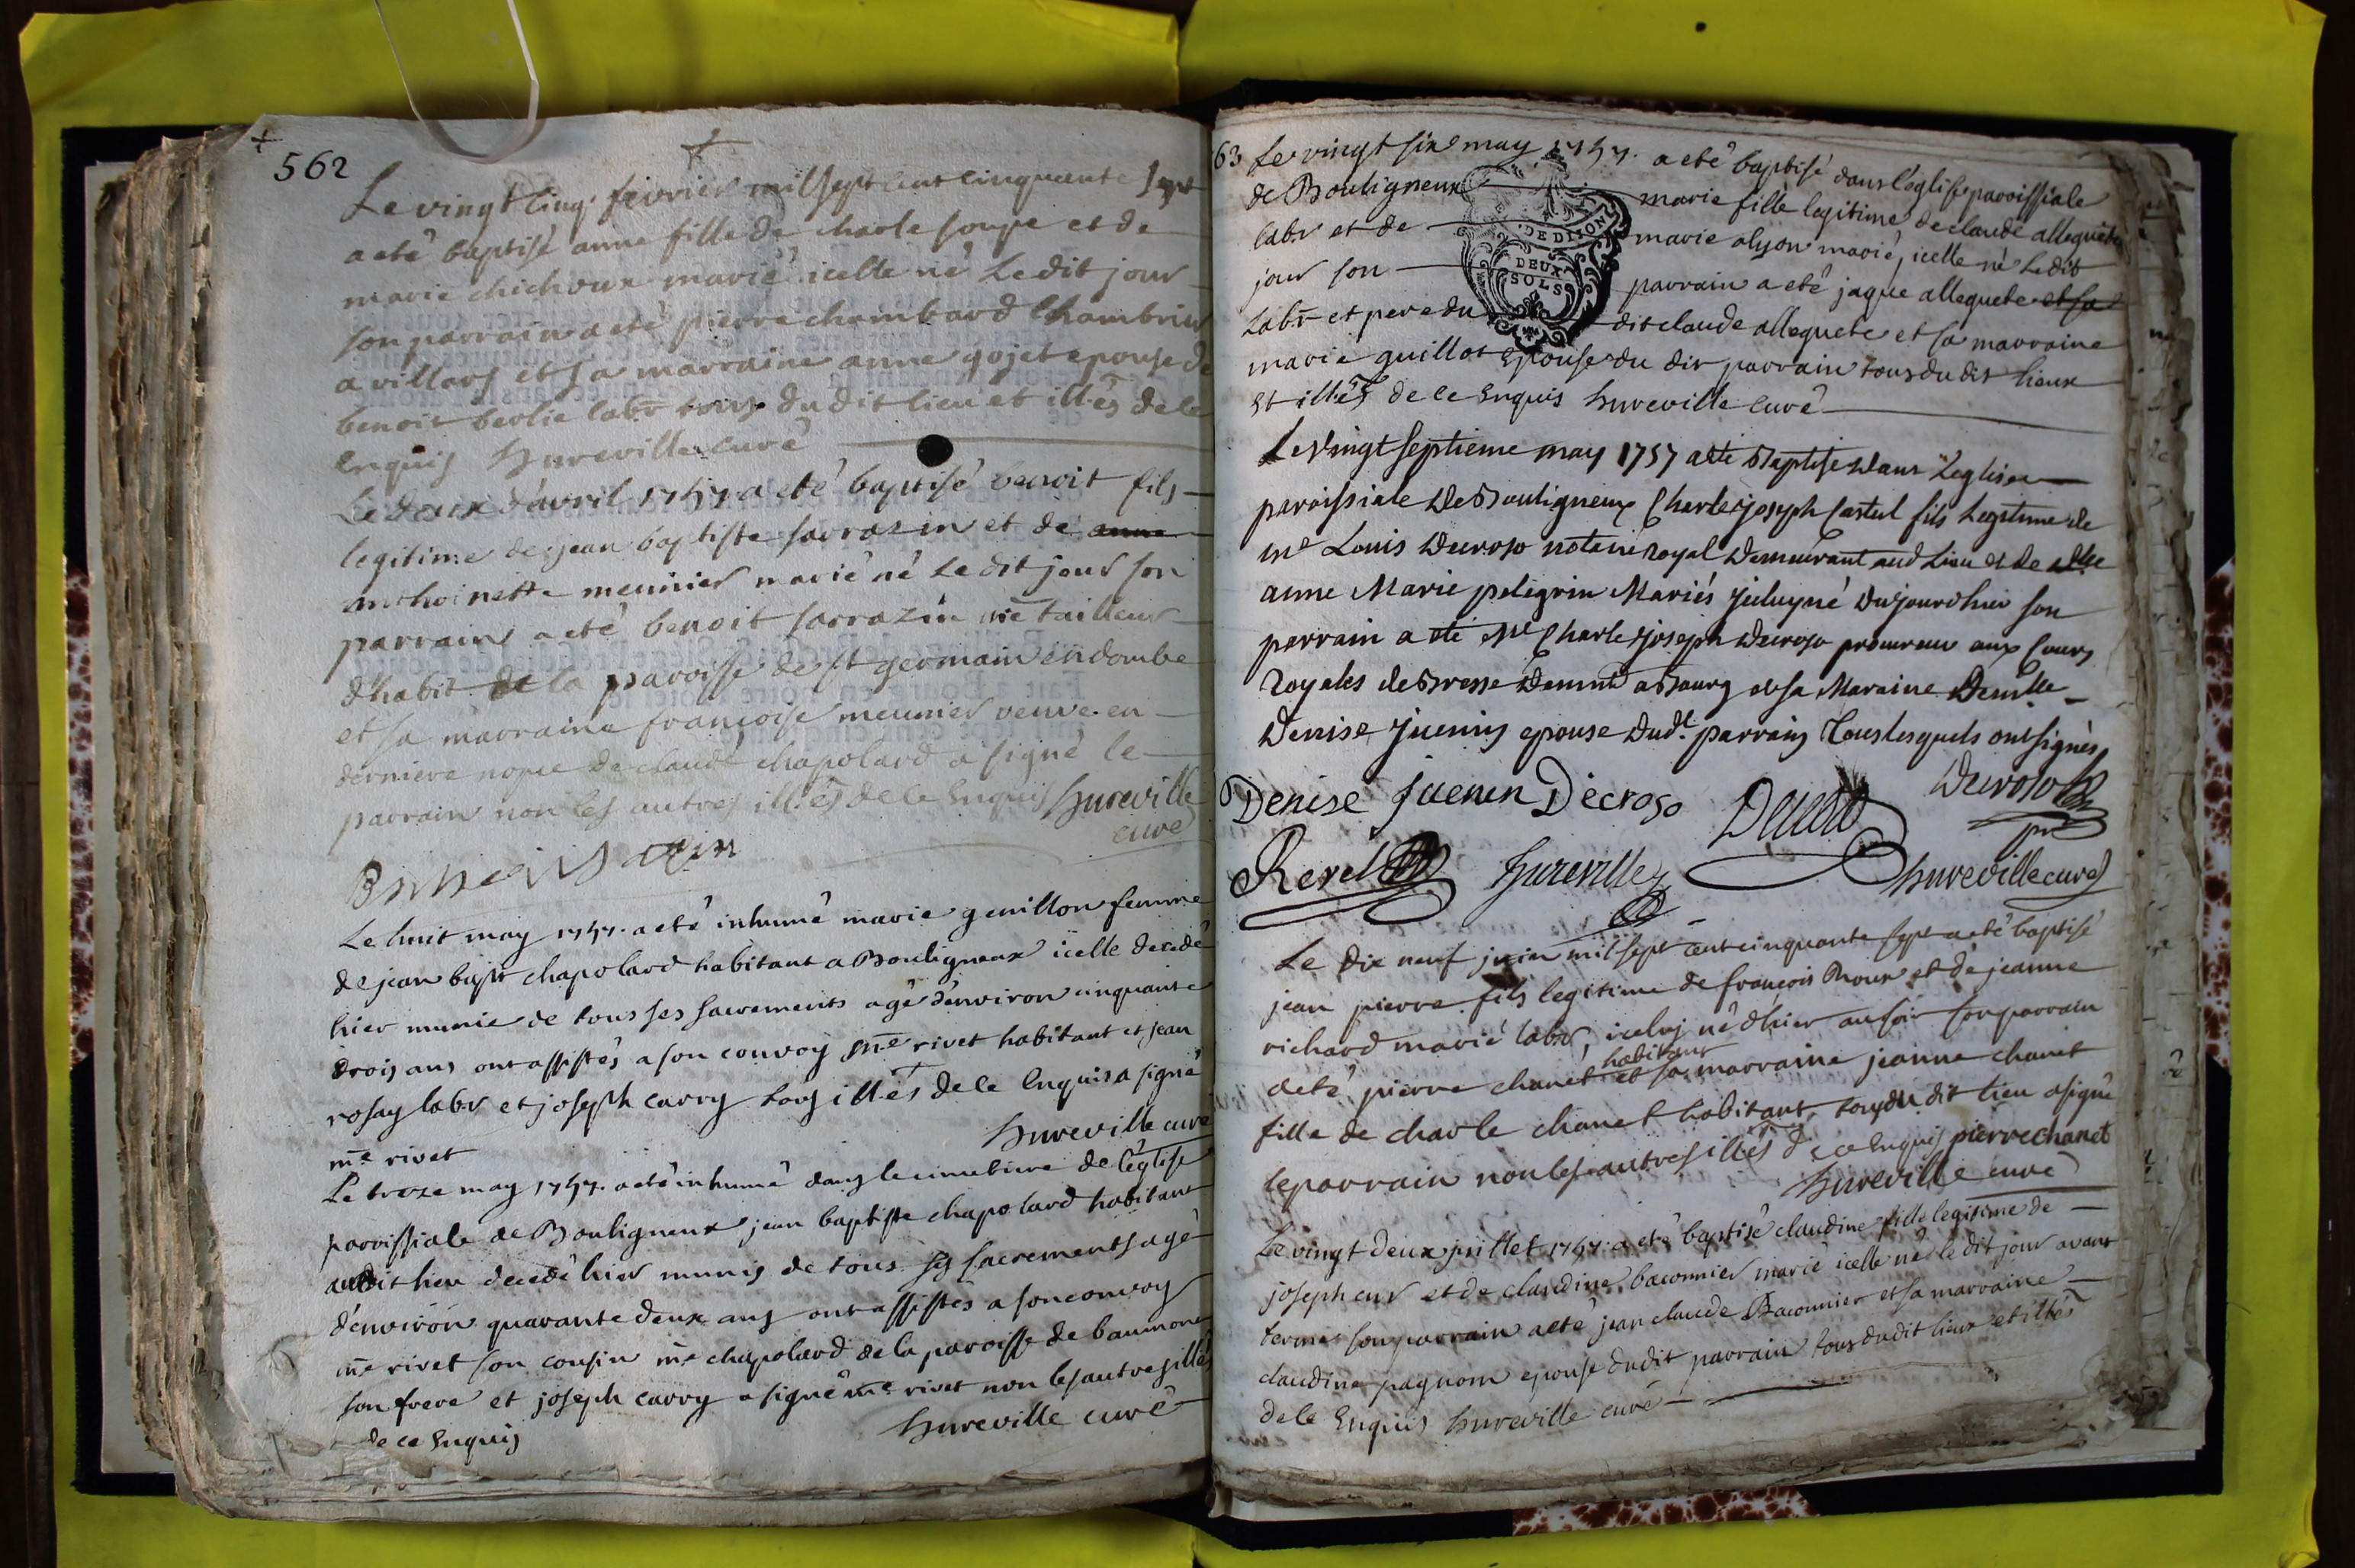 562
Le vingt cinq. fevrier mil sept cent cinquante sept
a eté baptisé anne fille de charle soupe et de
marie chichoux marié icelle né Le dit jour
son parrain a eté pierre chambard
a villars et sa marraine anne gojet epouse de
benoit berlie labr tous du dit lieu et illés de ce
Enquis hureville curé
Le deux d'avril 1757. a eté baptisé benoit fils
legitime de jean baptiste sarrazin et de anne
anthoinette meunier marié né Le dit jour son
parrain a eté benoit sarrazin me tailleur
d'habit de la paroisse de st germain en dombe
et sa marraine françoise meunier veuve en
derniere nopce de claude chapolard a signé le
parrain non les autres illés de ce Enquis hureville
curé
Le huit may 1757. a eté inhumé marie guillon femme
de jean bapt chapolard habitant a Bouligneux icelle decedé
hier munie de tous ses sacrements agé d'environ cinquante
trois ans ont assistés a son convoy me rivet habitant et jean
rosay labr et joseph carry tous illés de ce Enquis a signé
me rivet hureville curé
Le treze may 1757. a eté inhumé dans le cimetiere de l'église
parroissiale de Bouligneux jean baptiste chapolard habitant
audit lieu decedé hier munis de tous ses sacrements agé
d'environ quarante deux ans ont assistés a son convoy
me rivet son cousin me chapolard de la paroisse de baumont
son frere et joseph carry a signé me rivet non les autres illés
de ce Enquis hureville curé
63 Le vingt six may 1757. a eté baptisé dans l'eglise paroissiale
de Bouligneux marie fille legitime de claude allequete
labr et de marie alyon marié, icelle né Le dit
DE DIJON
DEUX
SOLS
jour son parrain a eté jaque allequete et sa
Labr et pere du dit claude allequete et sa marraine
marie guillot Epouse du dit parrain tous du dit lieux
Et illés de ce Enquis hureville curé
Le Vingt Septieme may 1757 a eté Baptise dans L'eglise
paroissiale de Bouligneux Charle joseph fils Legitime de
me Louis Decroso notaire royal Demeurant aud Lieu et de dlle
anne Marie peligrin Mariés né Dujourdhui son
parrain a eté me Charle joseph Decroso procureur aux Cours
Royales de Bresse Demt a Bourg et sa Maraine Demlle
Denise Juenin epouse Dudt. parrain Tous lesquels ont signés
Denise Juenin Decroso
Decroso
Revel hureville hureville curé
Le Dix neuf juin mil sept cent cinquante sept a eté baptisé
jean pierre fils legitime de françois Roux et de jeanne
richard marié labr, iceluy né d'hier au soir son parrain
a eté pierre chanet habitant et sa marraine jeanne chanet
fille de charle chanet habitant tous du dit lieu a signé
le parrain non les autres illés de ce Enquis pierre chanet
hureville curé
Le vingt deux juillet 1757. a eté baptisé claudine fille legitime de
joseph cur et de claudine baconnier marié icelle né le dit jour avant
terme son parrain a eté jean claude Baconnier et sa marraine
claudine pagnom epouse dudit parrain tous dudit lieux et illés
de ce Enquis hureville curé